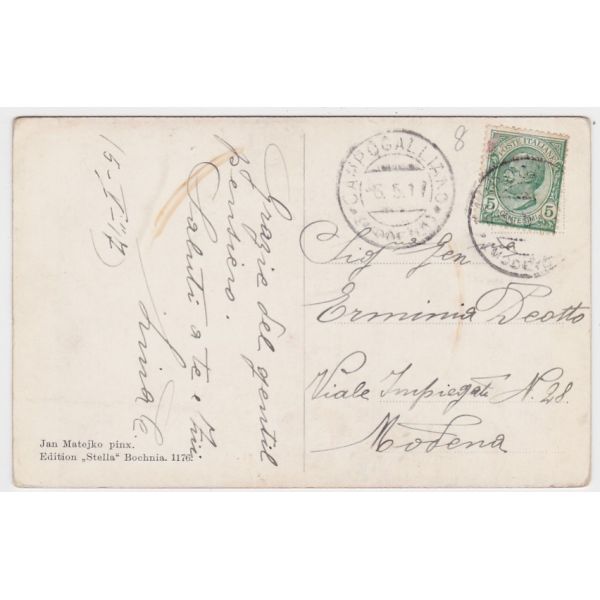 8
POSTE ITALIANE
5 CENTESIMI 5
CAMPOGALLIANO
6.5.17
(MODENA)
Sig.na Gen
Erminia Deotto
Viale Impiegati N. 28
Modena
15-V-17
Grazie del gentil
pensiero.
Saluti a te e
Jan Matejko pinx.
Edition „Stella" Bochnia. 1176.